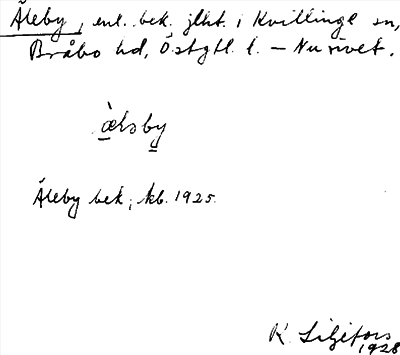 Åleby, enl. bek. jlht. i Kvillinge sn,
Bråbo hd, Östgtl. l. – Nu rivet.
Åleby bek; kb. 1925.
K. Liljefors
1928